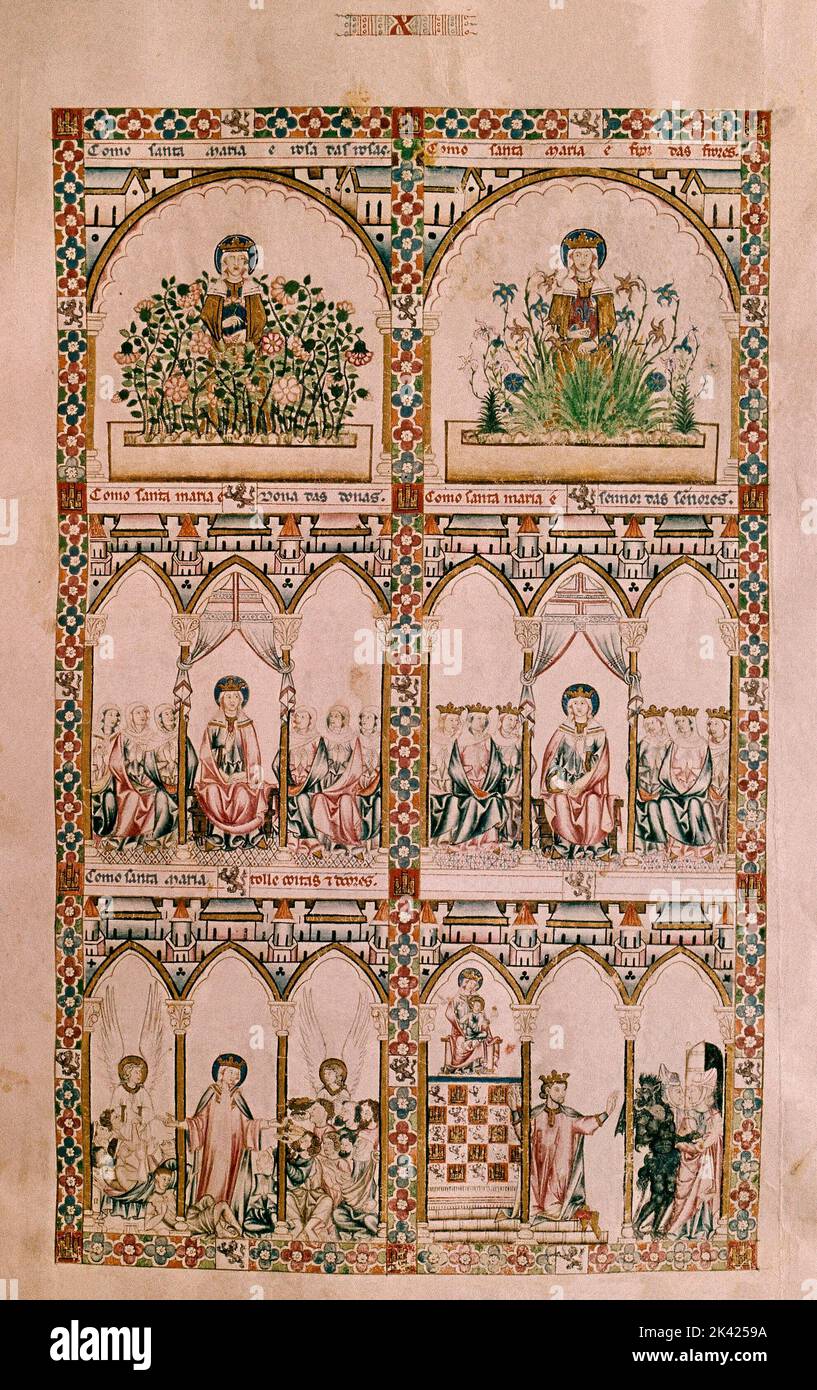 X
Como santa maria e rosa das rosas.
Como santa maria e fror das frores.
Como santa maria é dona das donas.
Como santa maria é sennor das señores.
Como santa maria tolle coitas & doores.
alamy
alamy
Image ID: 2K4259A
www.alamy.com